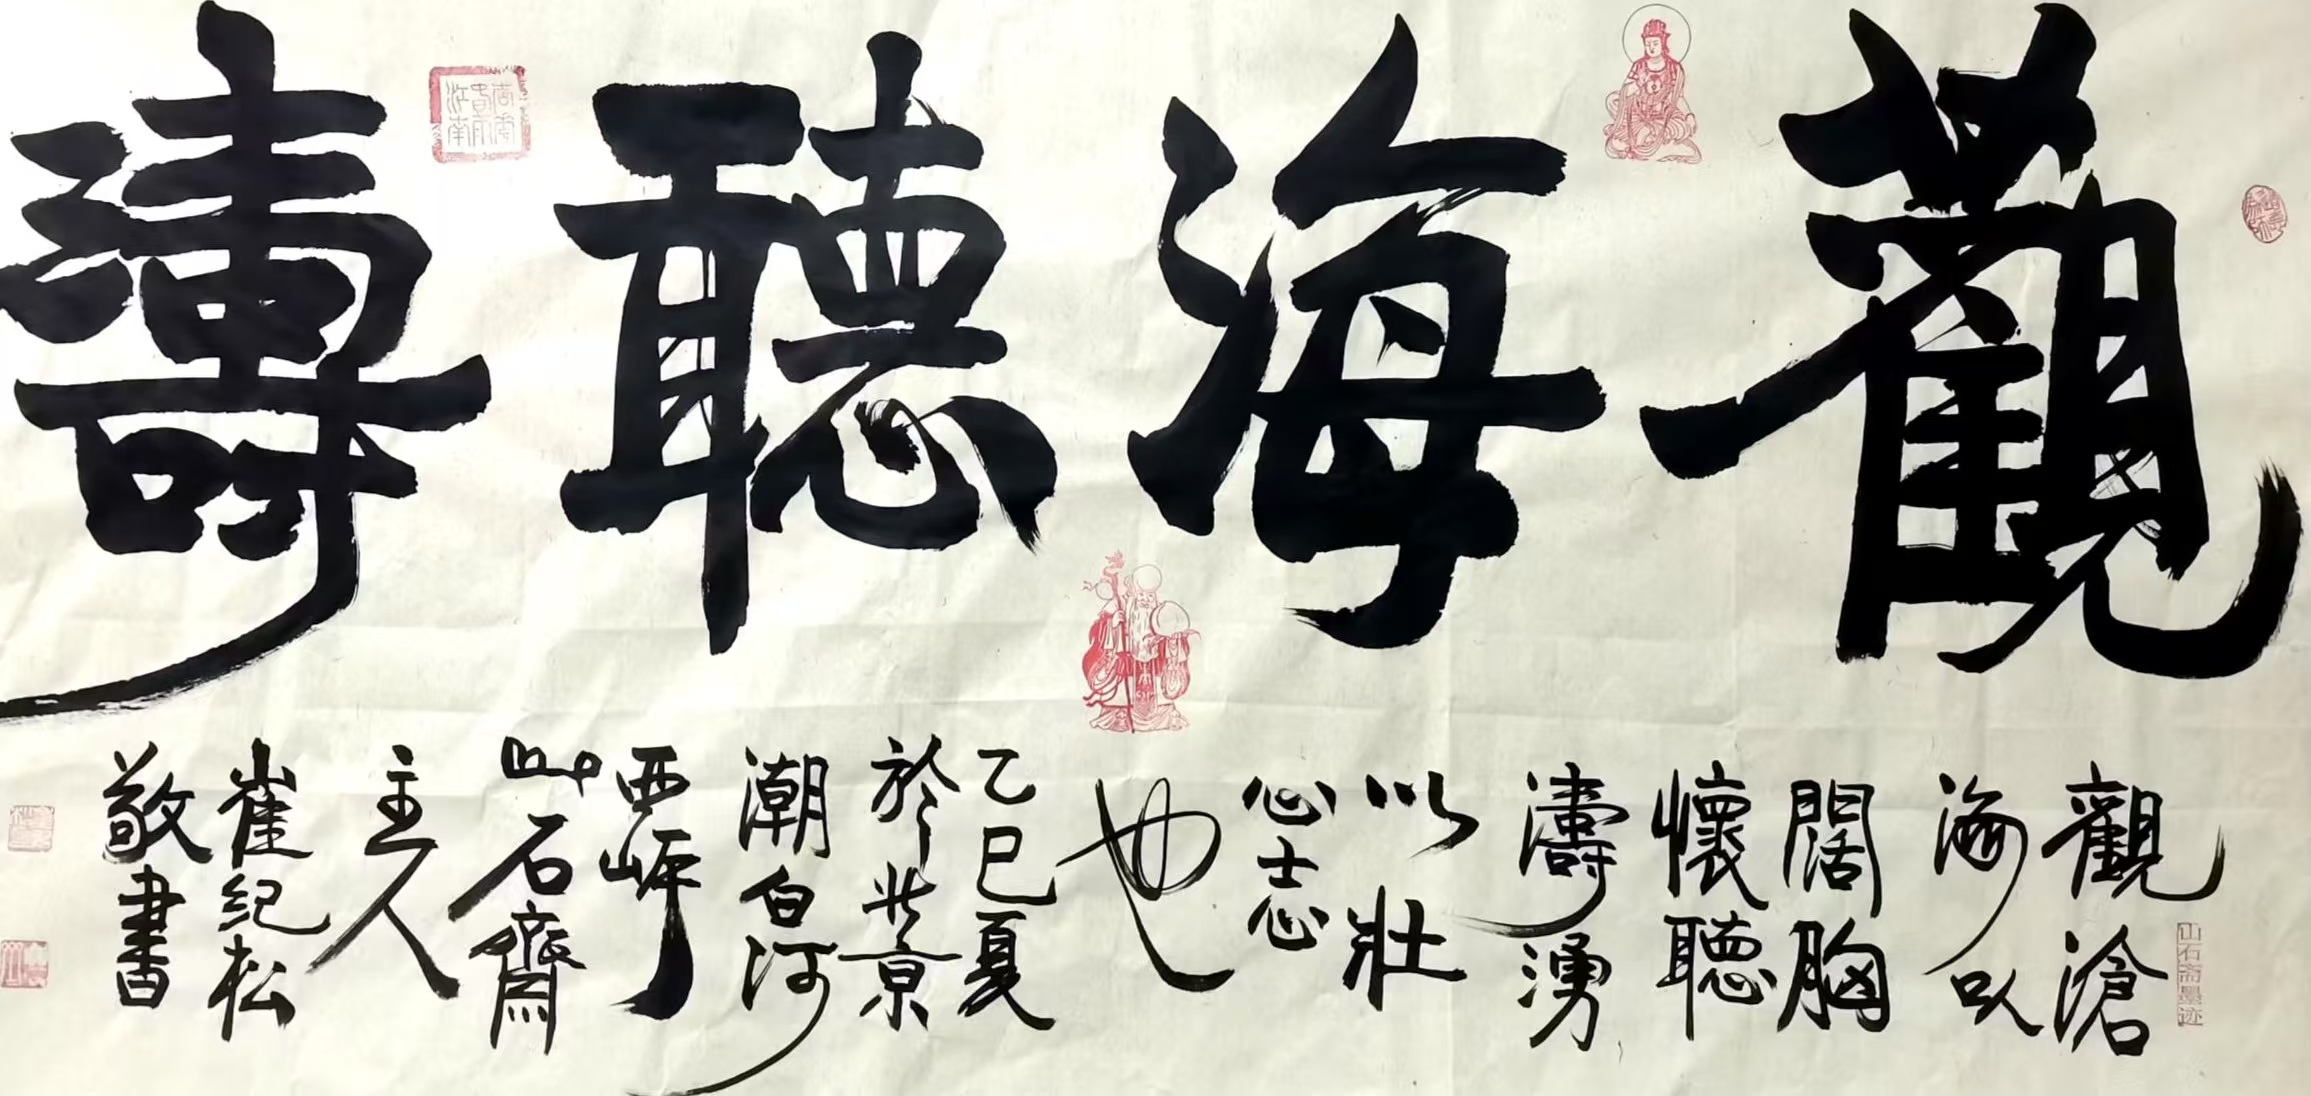 觀海聽濤
觀滄
海以
闊胸
懷聽
濤湧
以壯
心志
也
乙巳夏
於北京
潮白河
西岸
山石齋
主人
崔紀松
敬書
山石斋墨迹